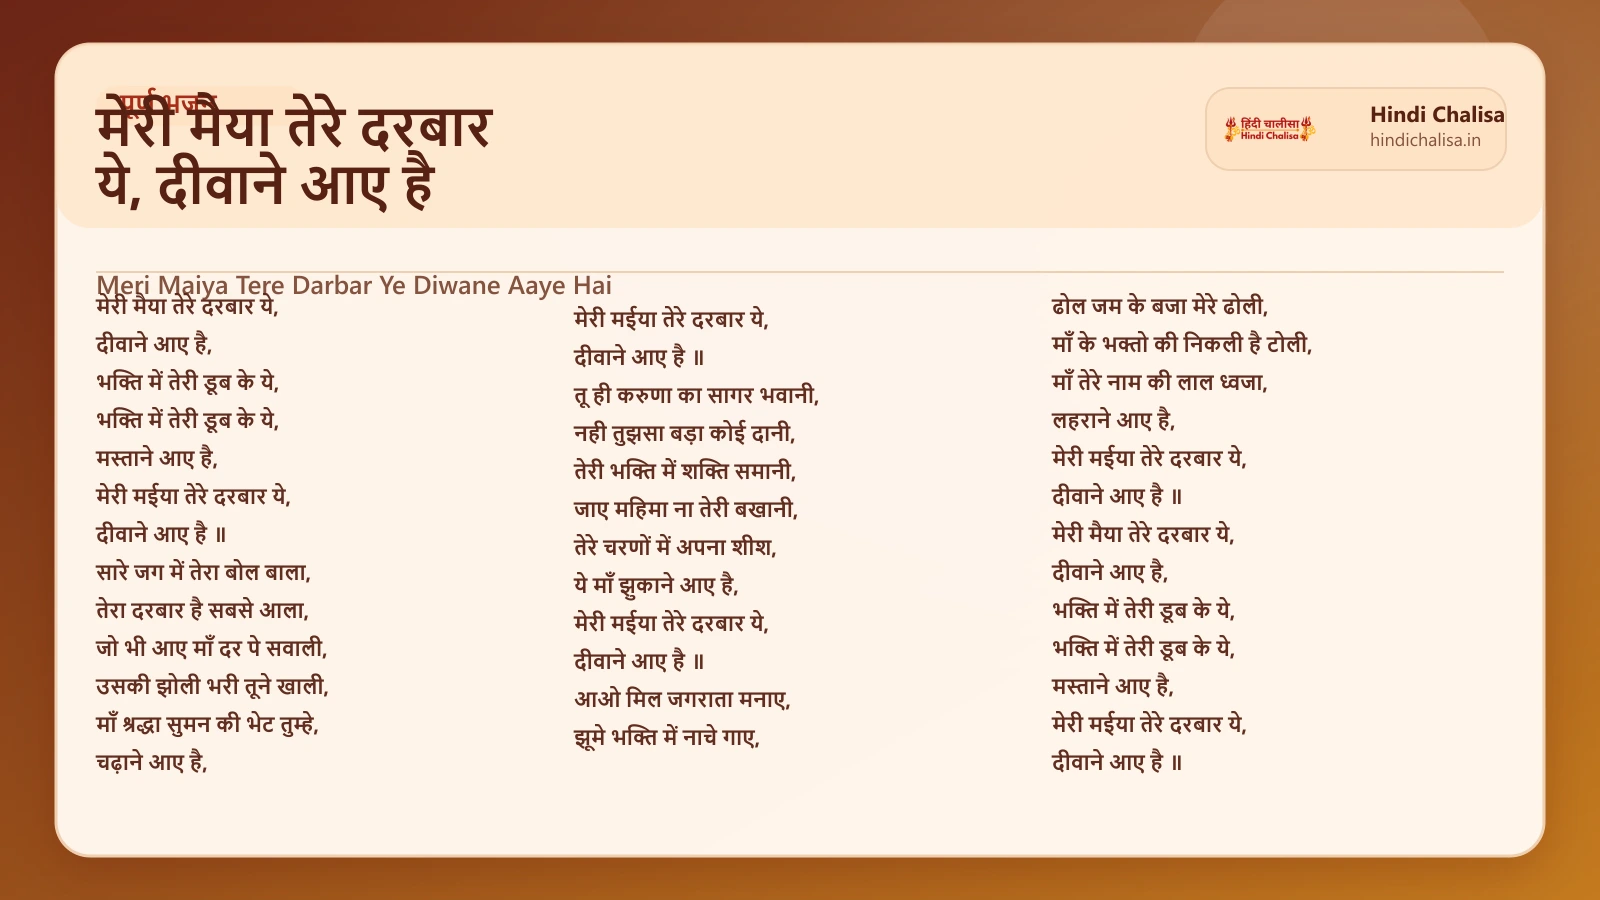 पूर्ण भजन
मेरी मैया तेरे दरबार
ये, दीवाने आए है
हिंदी चालीसा
Hindi Chalisa
Hindi Chalisa
hindichalisa.in
Meri Maiya Tere Darbar Ye Diwane Aaye Hai
मेरी मैया तेरे दरबार ये,
दीवाने आए है,
भक्ति में तेरी डूब के ये,
भक्ति में तेरी डूब के ये,
मस्ताने आए है,
मेरी मईया तेरे दरबार ये,
दीवाने आए है ॥
सारे जग में तेरा बोल बाला,
तेरा दरबार है सबसे आला,
जो भी आए माँ दर पे सवाली,
उसकी झोली भरी तूने खाली,
माँ श्रद्धा सुमन की भेट तुम्हे,
चढ़ाने आए है,
मेरी मईया तेरे दरबार ये,
दीवाने आए है ॥
तू ही करुणा का सागर भवानी,
नही तुझसा बड़ा कोई दानी,
तेरी भक्ति में शक्ति समानी,
जाए महिमा ना तेरी बखानी,
तेरे चरणों में अपना शीश,
ये माँ झुकाने आए है,
मेरी मईया तेरे दरबार ये,
दीवाने आए है ॥
आओ मिल जगराता मनाए,
झूमे भक्ति में नाचे गाए,
ढोल जम के बजा मेरे ढोली,
माँ के भक्तो की निकली है टोली,
माँ तेरे नाम की लाल ध्वजा,
लहराने आए है,
मेरी मईया तेरे दरबार ये,
दीवाने आए है ॥
मेरी मैया तेरे दरबार ये,
दीवाने आए है,
भक्ति में तेरी डूब के ये,
भक्ति में तेरी डूब के ये,
मस्ताने आए है,
मेरी मईया तेरे दरबार ये,
दीवाने आए है ॥